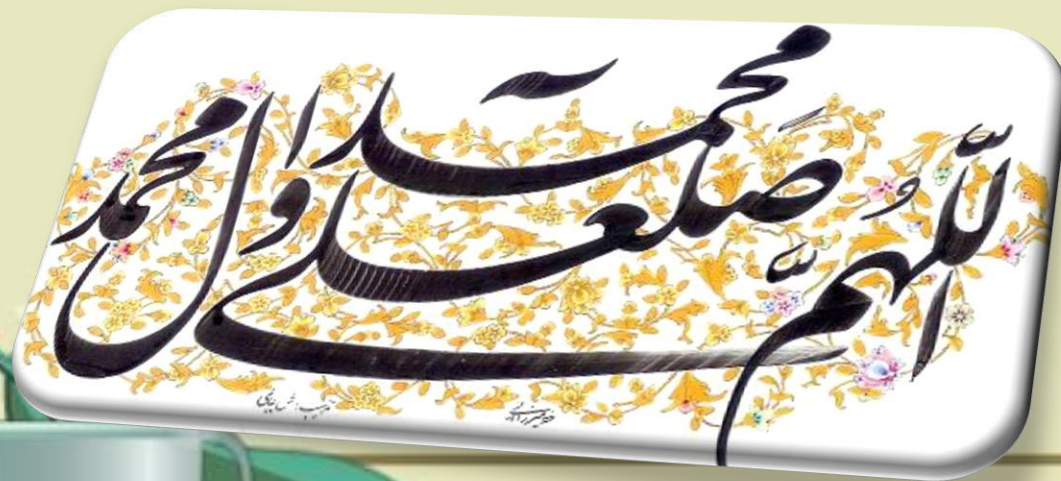 اللّهمّ صَلّ علی محمد و آل محمد